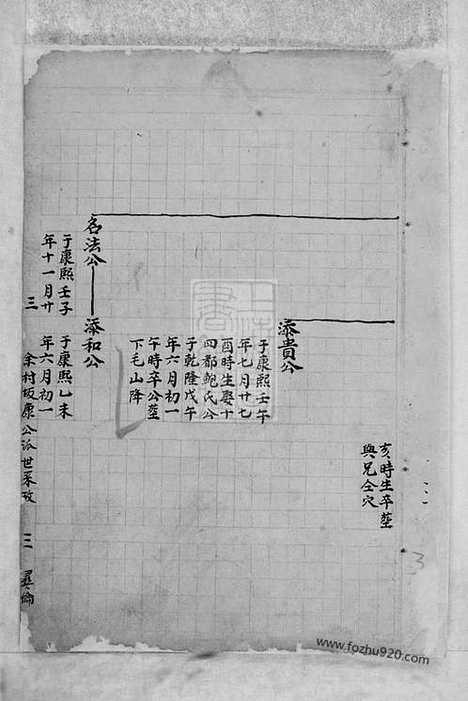 亥時生卒塟
與兄仝穴
添貴公
于康熙壬午
年七月廿七
酉時生娶十
四都鮑氏公
于乾隆戊午
年六月初一
午時卒公塟
下毛山降
名法公
添和公
于康熙壬子
年十一月廿
三
于康熙乙未
年六月初一
余村坂康公派世系攷
三
彝倫
3
www.fozhu920.com